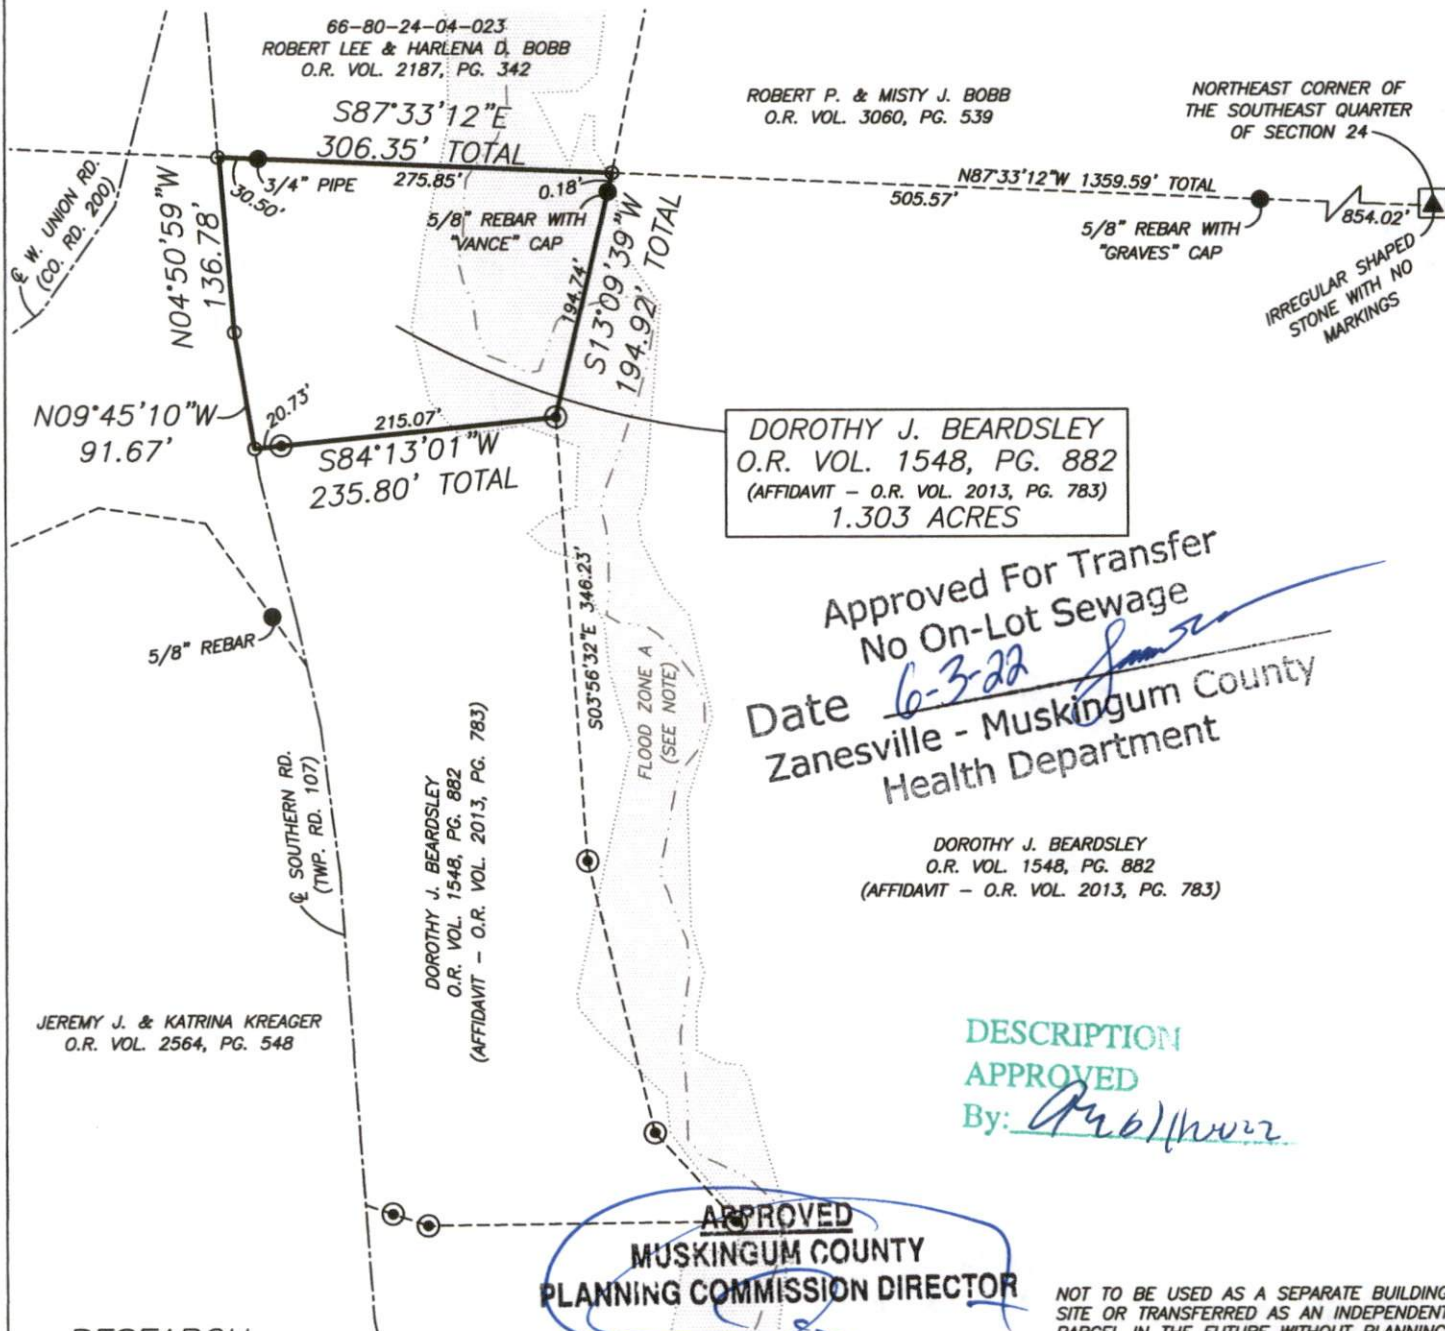 66-80-24-04-023
ROBERT LEE & HARLENA D. BOBB
O.R. VOL. 2187, PG. 342
S87°33'12"E
306.35' TOTAL
275.85'
30.50'
3/4" PIPE
0.18'
5/8" REBAR WITH
"VANCE" CAP
ROBERT P. & MISTY J. BOBB
O.R. VOL. 3060, PG. 539
NORTHEAST CORNER OF
THE SOUTHEAST QUARTER
OF SECTION 24
N87°33'12"W 1359.59' TOTAL
505.57'
5/8" REBAR WITH
"GRAVES" CAP
854.02'
IRREGULAR SHAPED
STONE WITH NO
MARKINGS
℄ W. UNION RD.
(CO. RD. 200)
N04°50'59"W
136.78'
194.74'
S13°09'39"W
194.92' TOTAL
N09°45'10"W
91.67'
20.73'
215.07'
S84°13'01"W
235.80' TOTAL
DOROTHY J. BEARDSLEY
O.R. VOL. 1548, PG. 882
(AFFIDAVIT - O.R. VOL. 2013, PG. 783)
1.303 ACRES
Approved For Transfer
No On-Lot Sewage
Date 6-3-22
Zanesville - Muskingum County
Health Department
5/8" REBAR
S03°56'32"E 346.23'
FLOOD ZONE A
(SEE NOTE)
℄ SOUTHERN RD.
(TWP. RD. 107)
DOROTHY J. BEARDSLEY
O.R. VOL. 1548, PG. 882
(AFFIDAVIT - O.R. VOL. 2013, PG. 783)
DOROTHY J. BEARDSLEY
O.R. VOL. 1548, PG. 882
(AFFIDAVIT - O.R. VOL. 2013, PG. 783)
JEREMY J. & KATRINA KREAGER
O.R. VOL. 2564, PG. 548
DESCRIPTION
APPROVED
By:
APPROVED
MUSKINGUM COUNTY
PLANNING COMMISSION DIRECTOR
NOT TO BE USED AS A SEPARATE BUILDING
SITE OR TRANSFERRED AS AN INDEPENDENT
PARCEL IN THE FUTURE WITHOUT PLANNING
RESEARCH